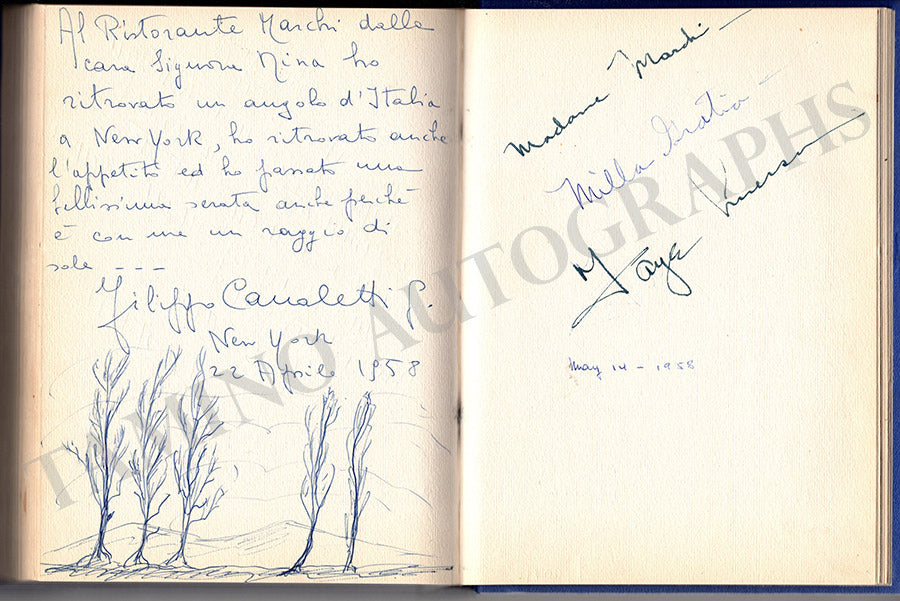 Al Ristorante Marchi dalla
cara Signora Nina ho
ritrovato un angolo d'Italia
a New York, ho ritrovato anche
l'appetito ed ho passato una
bellissima serata anche perché
è con me un raggio di
sole - - -
Filippo Canaletti G.
New York
22 Aprile 1958
Madame Marchi -
Mille Grazie -
Faye Emerson
May 14 - 1958
TAMINO AUTOGRAPHS